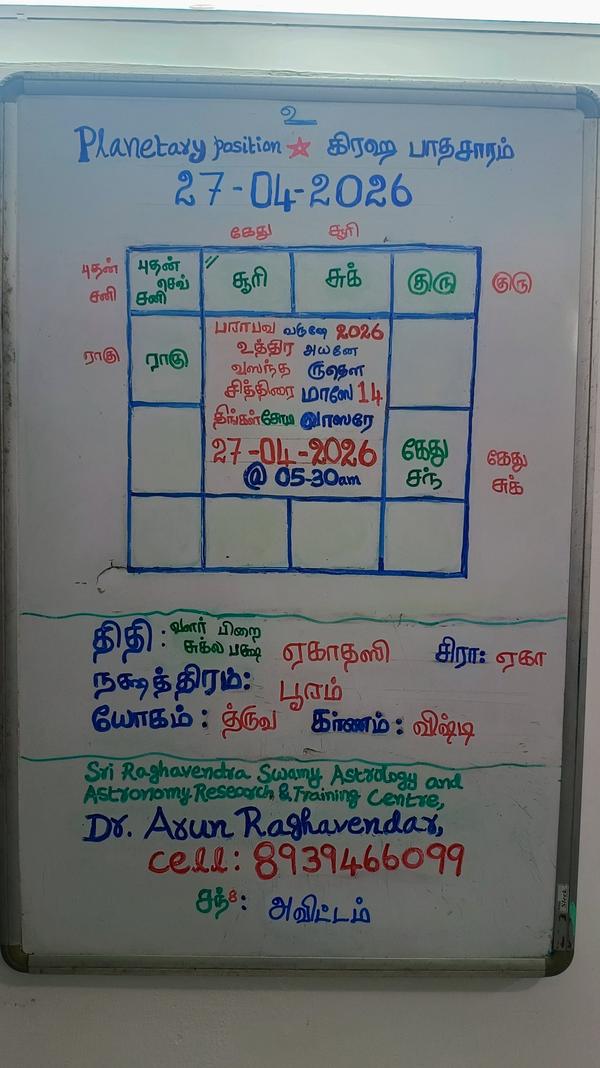 உ
Planetary position ☆ கிரஹ பாதசாரம்
27-04-2026
கேது சூரி
புதன் சனி
புதன் செவ் சனி
சூரி
சுக்
குரு
குரு
ராகு
ராகு
பராபவ வருஷே 2026
உத்திர அயனே
வஸந்த ருதௌ
சித்திரை மாஸே 14
திங்கள்சோம வாஸரே
27-04-2026
@ 05-30am
கேது
சந்
கேது
சுக்
திதி : வளர் பிறை சுக்ல பக்ஷ ஏகாதஸி சிரா: ஏகா
நக்ஷத்திரம்: பூரம்
யோகம் : த்ருவ கரணம் : விஷ்டி
Sri Raghavendra Swamy Astrology and
Astronomy Research & Training Centre,
Dr. Arun Raghavendar,
cell: 8939466099
சந்8: அவிட்டம்